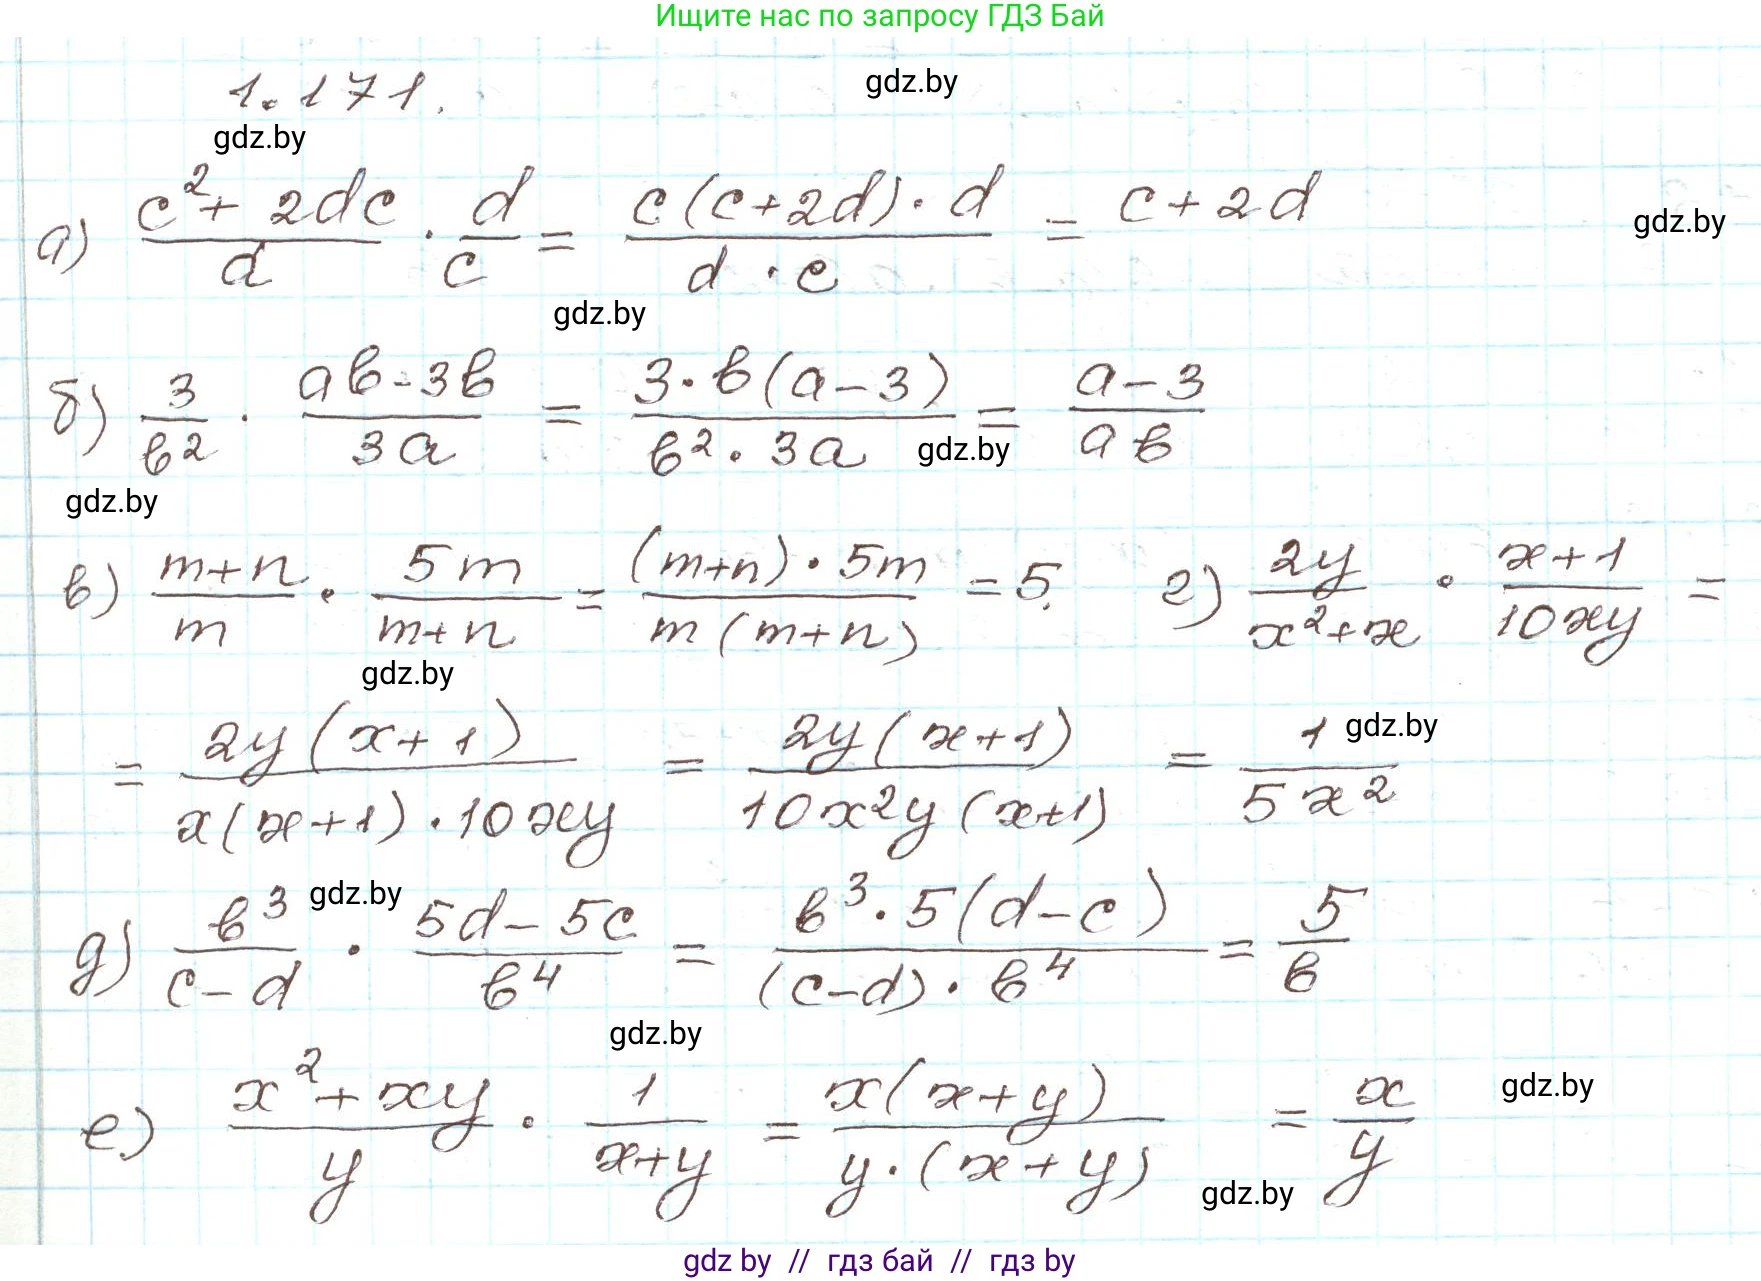 Ищите нас по запросу ГДЗ Бай
1.171.
gdz.by
gdz.by
а) (c² + 2dc)/d · d/c = (c(c+2d)·d)/(d·c) = c+2d
gdz.by
gdz.by
б) 3/b² · (ab-3b)/(3a) = (3·b(a-3))/(b²·3a) = (a-3)/(ab)
gdz.by
gdz.by
в) (m+n)/m · (5m)/(m+n) = ((m+n)·5m)/(m(m+n)) = 5. г) (2y)/(x²+x) · (x+1)/(10xy) =
gdz.by
= (2y(x+1))/(x(x+1)·10xy) = (2y(x+1))/(10x²y(x+1)) = 1/(5x²)
gdz.by
gdz.by
д) b³/(c-d) · (5d-5c)/b⁴ = (b³·5(d-c))/((c-d)·b⁴) = 5/b
gdz.by
е) (x²+xy)/y · 1/(x+y) = (x(x+y))/(y·(x+y)) = x/y
gdz.by
gdz.by
gdz by // гдз бай // гдз by